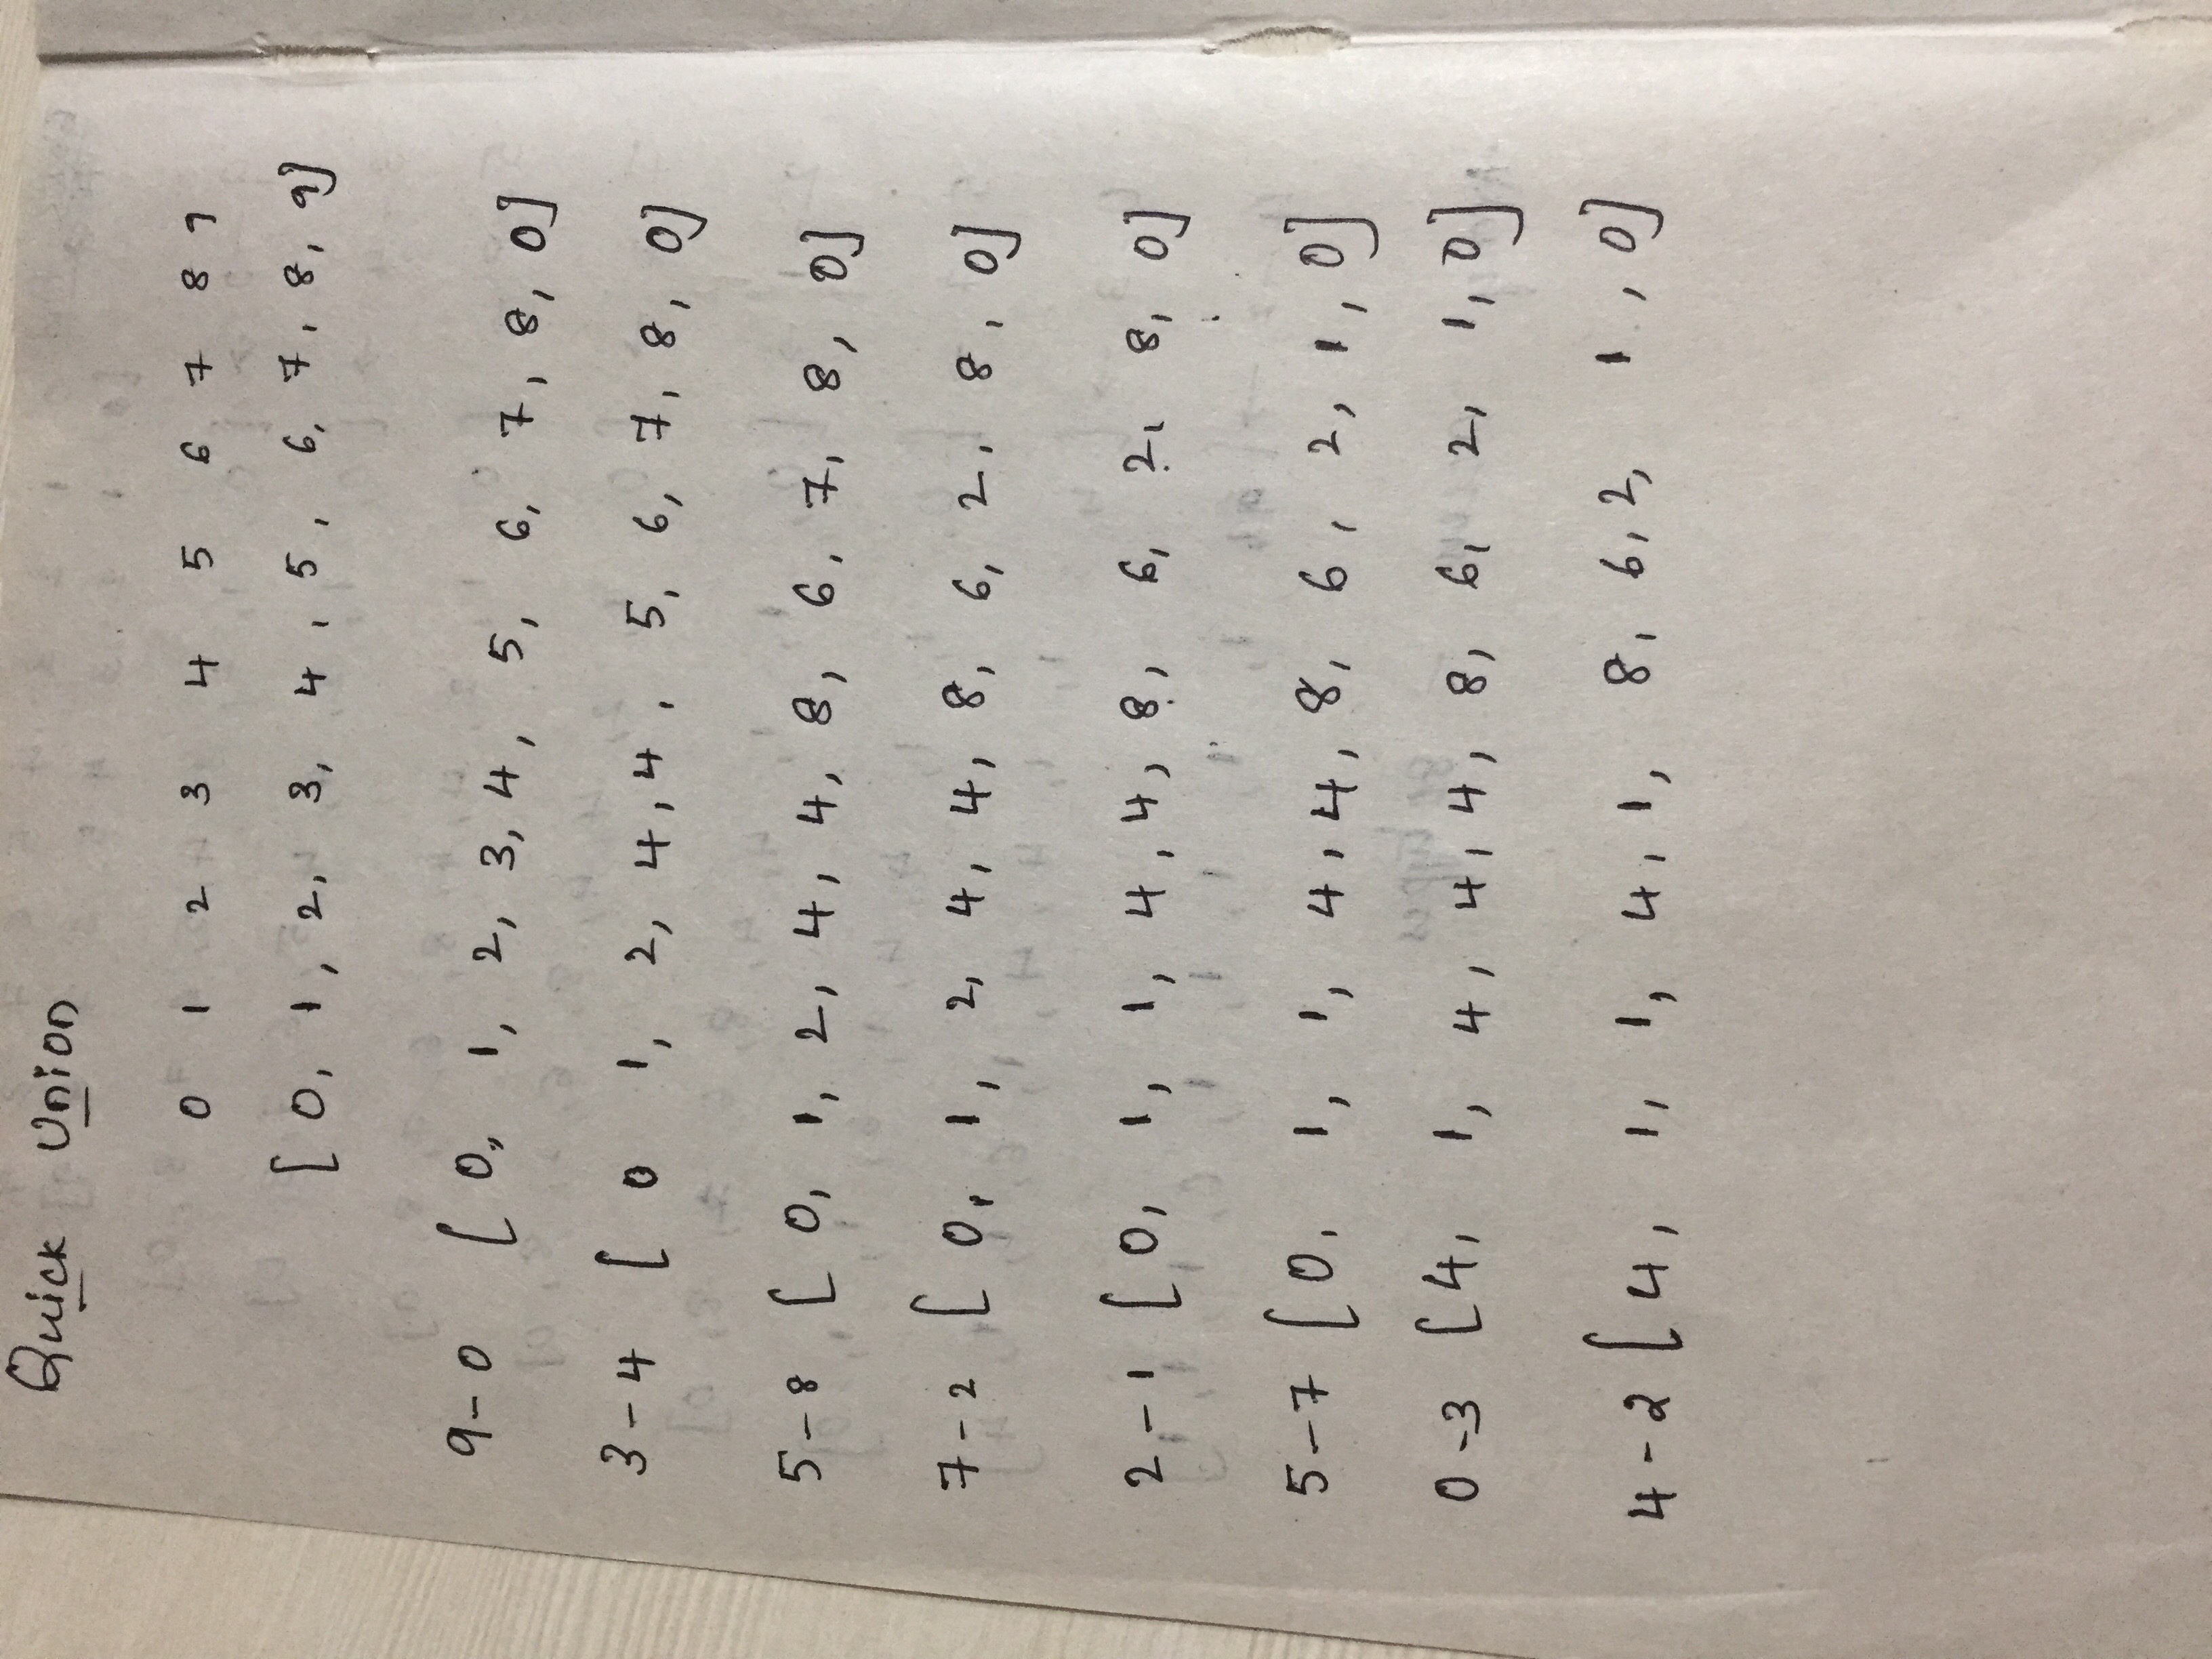 Quick Union
0 1 2 3 4 5 6 7 8 9
[ 0, 1, 2, 3, 4, 5, 6, 7, 8, 9]
9-0 [ 0, 1, 2, 3, 4, 5, 6, 7, 8, 0]
3-4 [ 0 1, 2, 4, 4, 5, 6, 7, 8, 0]
5-8 [ 0, 1, 2, 4, 4, 8, 6, 7, 8, 0]
7-2 [ 0, 1, 2, 4, 4, 8, 6, 2, 8, 0]
2-1 [ 0, 1, 1, 4, 4, 8, 6, 2, 8, 0]
5-7 [ 0, 1, 1, 4, 4, 8, 6, 2, 1, 0]
0-3 [ 4, 1, 4, 4, 4, 8, 6, 2, 1, 0]
4-2 [ 4, 1, 1, 4, 1, 8, 6, 2, 1, 0]